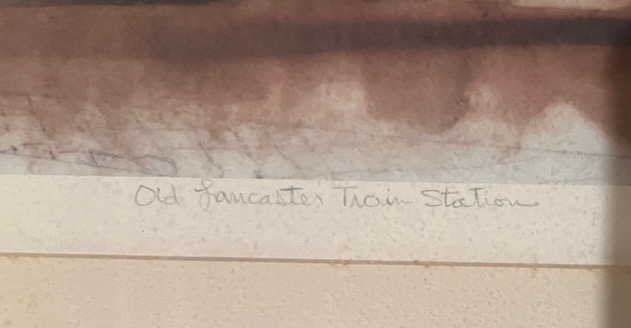 Old Lancaster Train Station